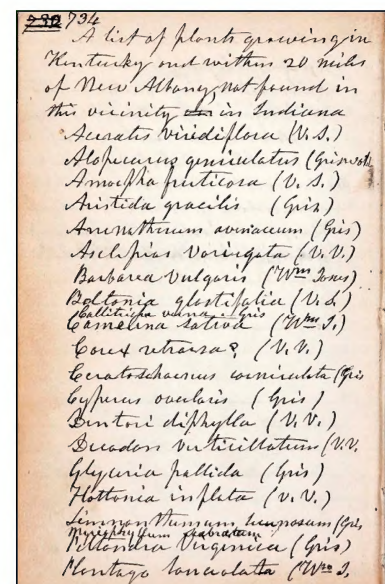 230 734
A list of plants growing in
Kentucky and within 20 miles
of New Albany, not found in
this vicinity in Indiana
Acerates viridiflora (V. S.)
Alopecurus geniculatus (Griswold
Amorpha fruticosa (V. S.)
Aristida gracilis (Gris)
Arrenatherum avenaceum (Gris)
Asclepias variegata (V. V.)
Barbarea vulgaris (Wm Jones)
Boltonia glastifolia (V. S.)
Callitriche verna - Gris
Camelina sativa (Wm J.)
Carex retrorsa? (V. V.)
Ceratoschoenus corniculata (Gris
Cyperus ovularis (Gris)
diphylla (V. V.)
Decodon verticillatum (V.V.
Glyceria pallida (Gris)
Hottonia inflata (V. V.)
Limnanthemum (Gris
Myriophyllum scabratum
Peltandra Virginica (Gris)
Plantago lanceolata (Wm J.